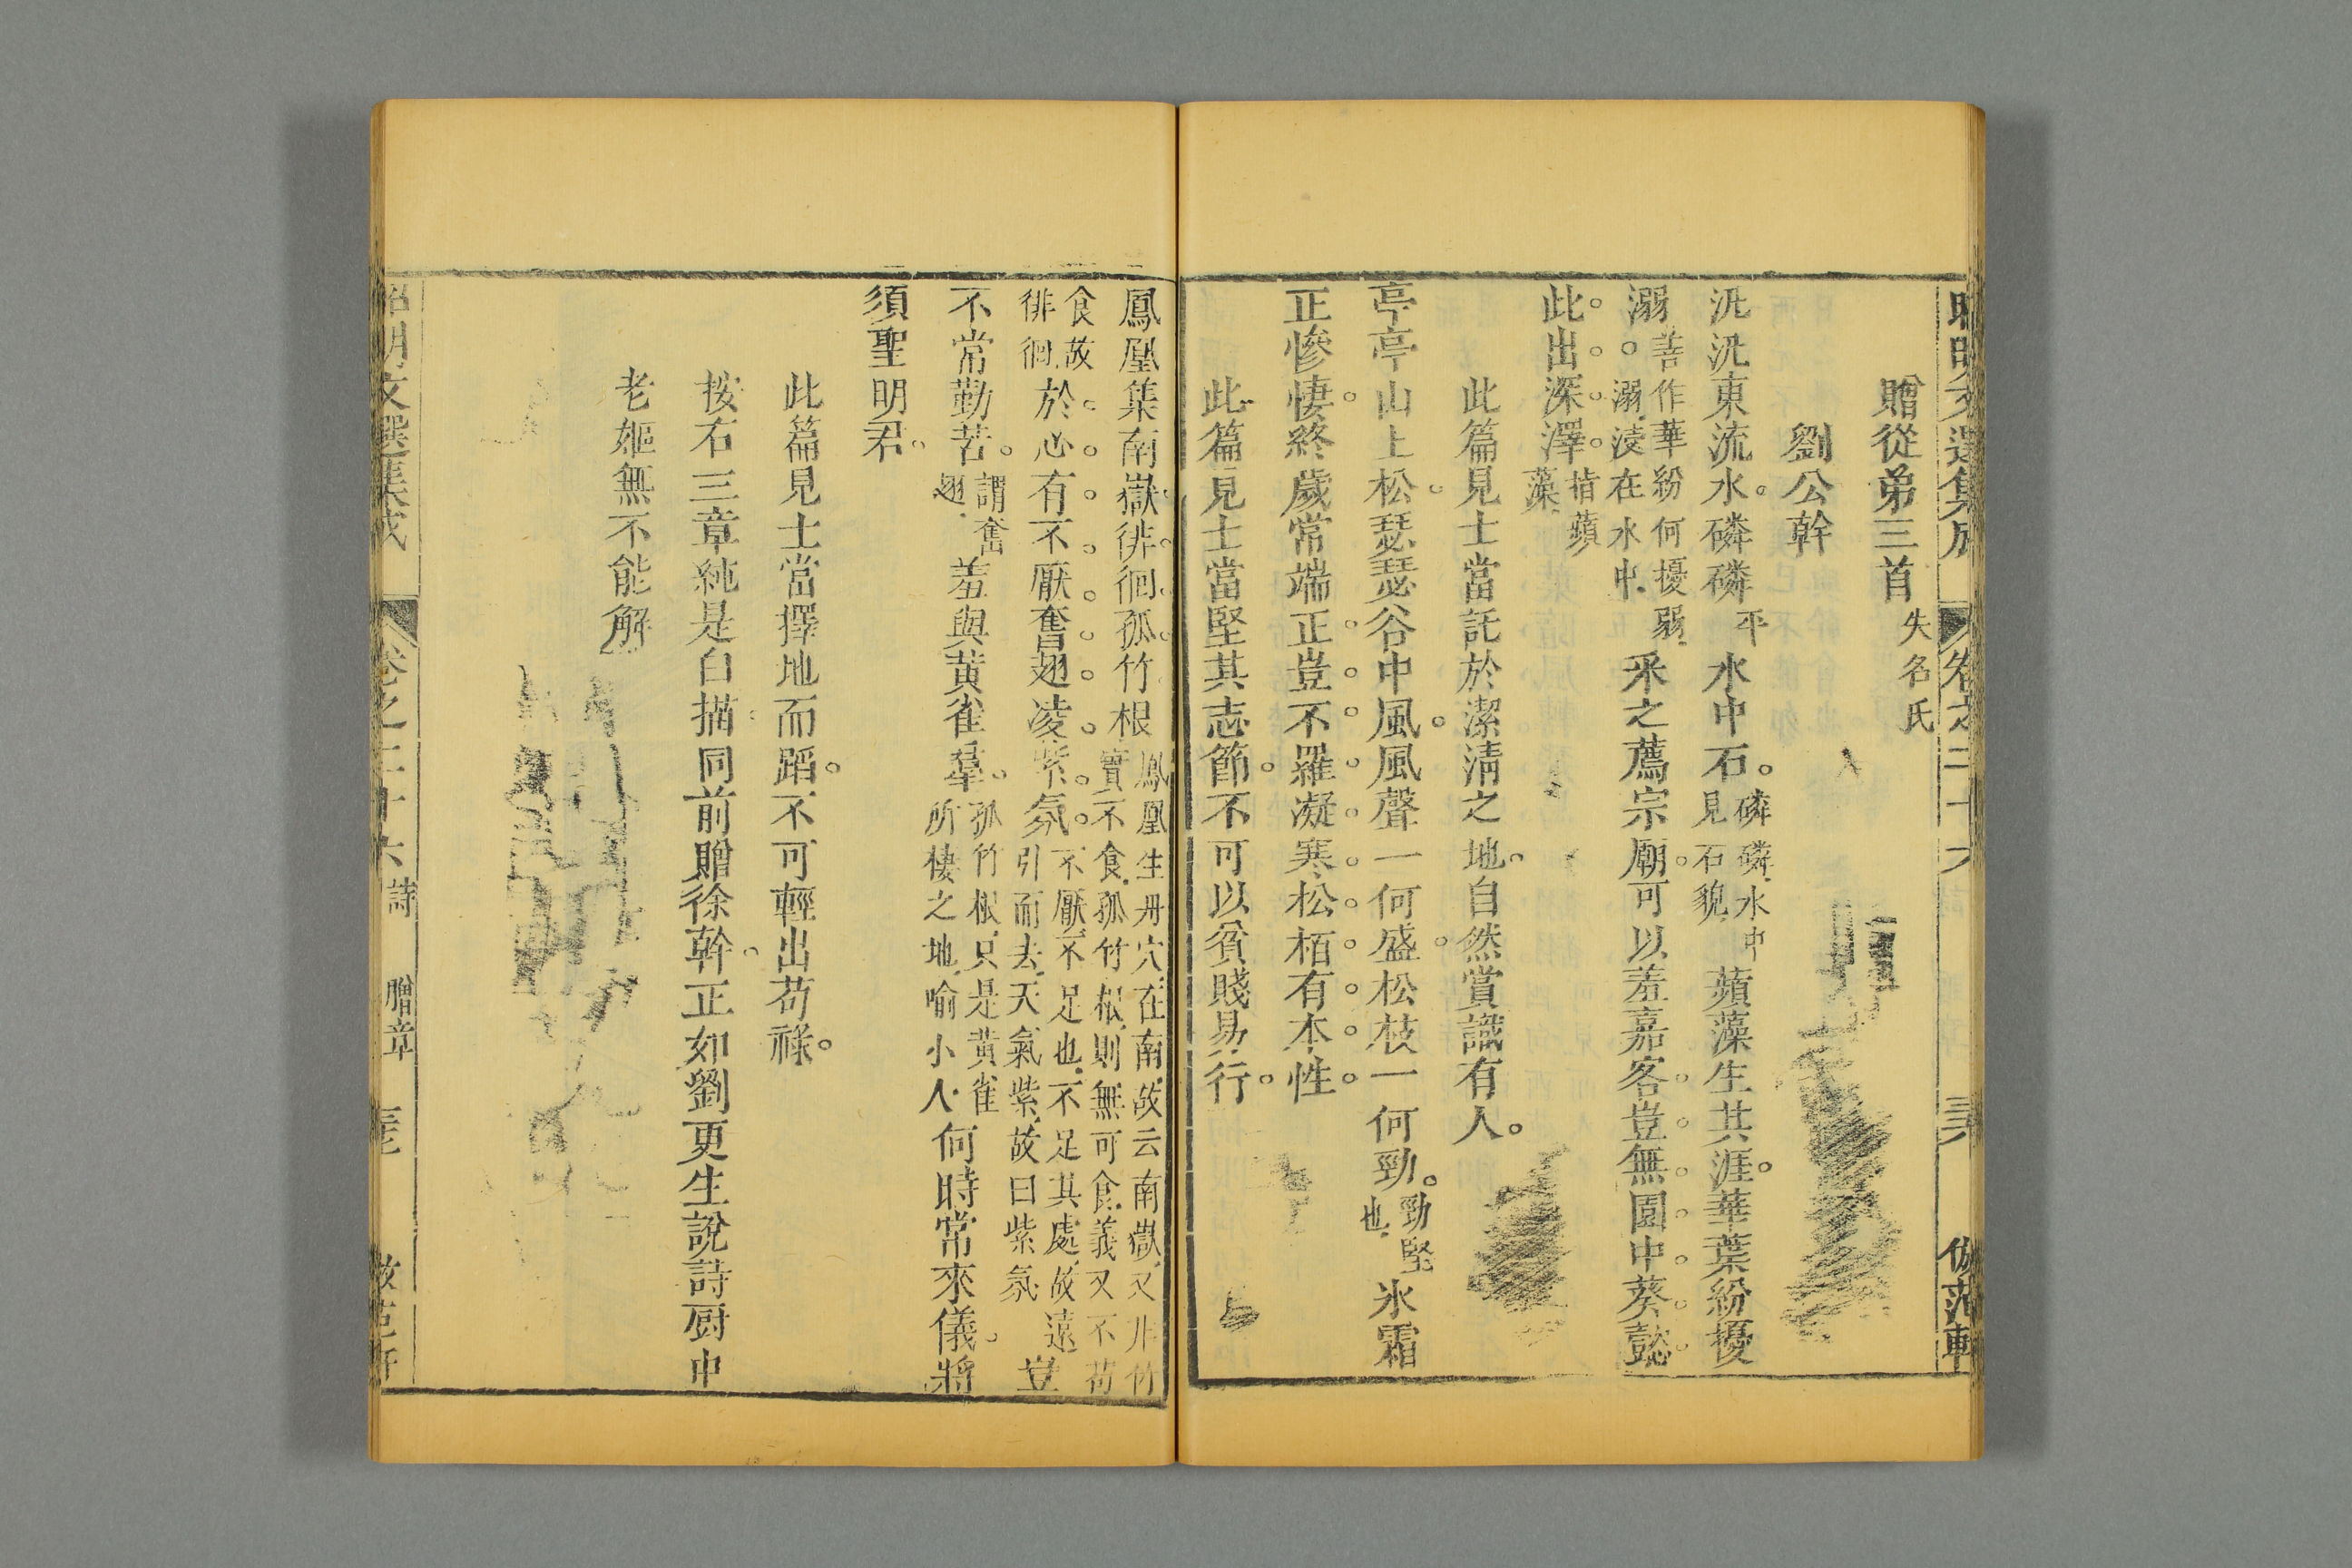 贈從弟三首失名氏
劉公幹
汎汎東流水磷磷平水中石磷磷水中見石貌蘋藻生共涯華葉紛擾
溺善作華紛何擾弱溺浸在水中采之薦宗廟可以羞嘉客豈無園中葵懿
此出深澤指蘋藻
此篇見士當託於潔清之地自然賞識有人
亭亭山上松瑟瑟谷中風風聲一何盛松枝一何勁勁堅也氷霜
正慘悽終歲常端正豈不羅凝寒松栢有本性
此篇見士當堅其志節不可以貧賤易行
鳳凰集南嶽徘徊孤竹根鳳凰生丹穴在南故云南嶽又非竹實不食孤竹根則無可食義又不苟
食故徘徊於心有不厭奮翅凌紫氛不厭不足也不足其處故遠引而去天氣紫故曰紫氛豈
不常勤苦謂奮翅羞與黄雀羣孤竹根只是黄雀所棲之地喻小人何時常來儀將
須聖明君
此篇見士當擇地而蹈不可輕出苟祿
按右三章純是白描同前贈徐幹正如劉更生說詩厨中
老嫗無不能解
昭明文選集成 卷之二十六 詩 贈章